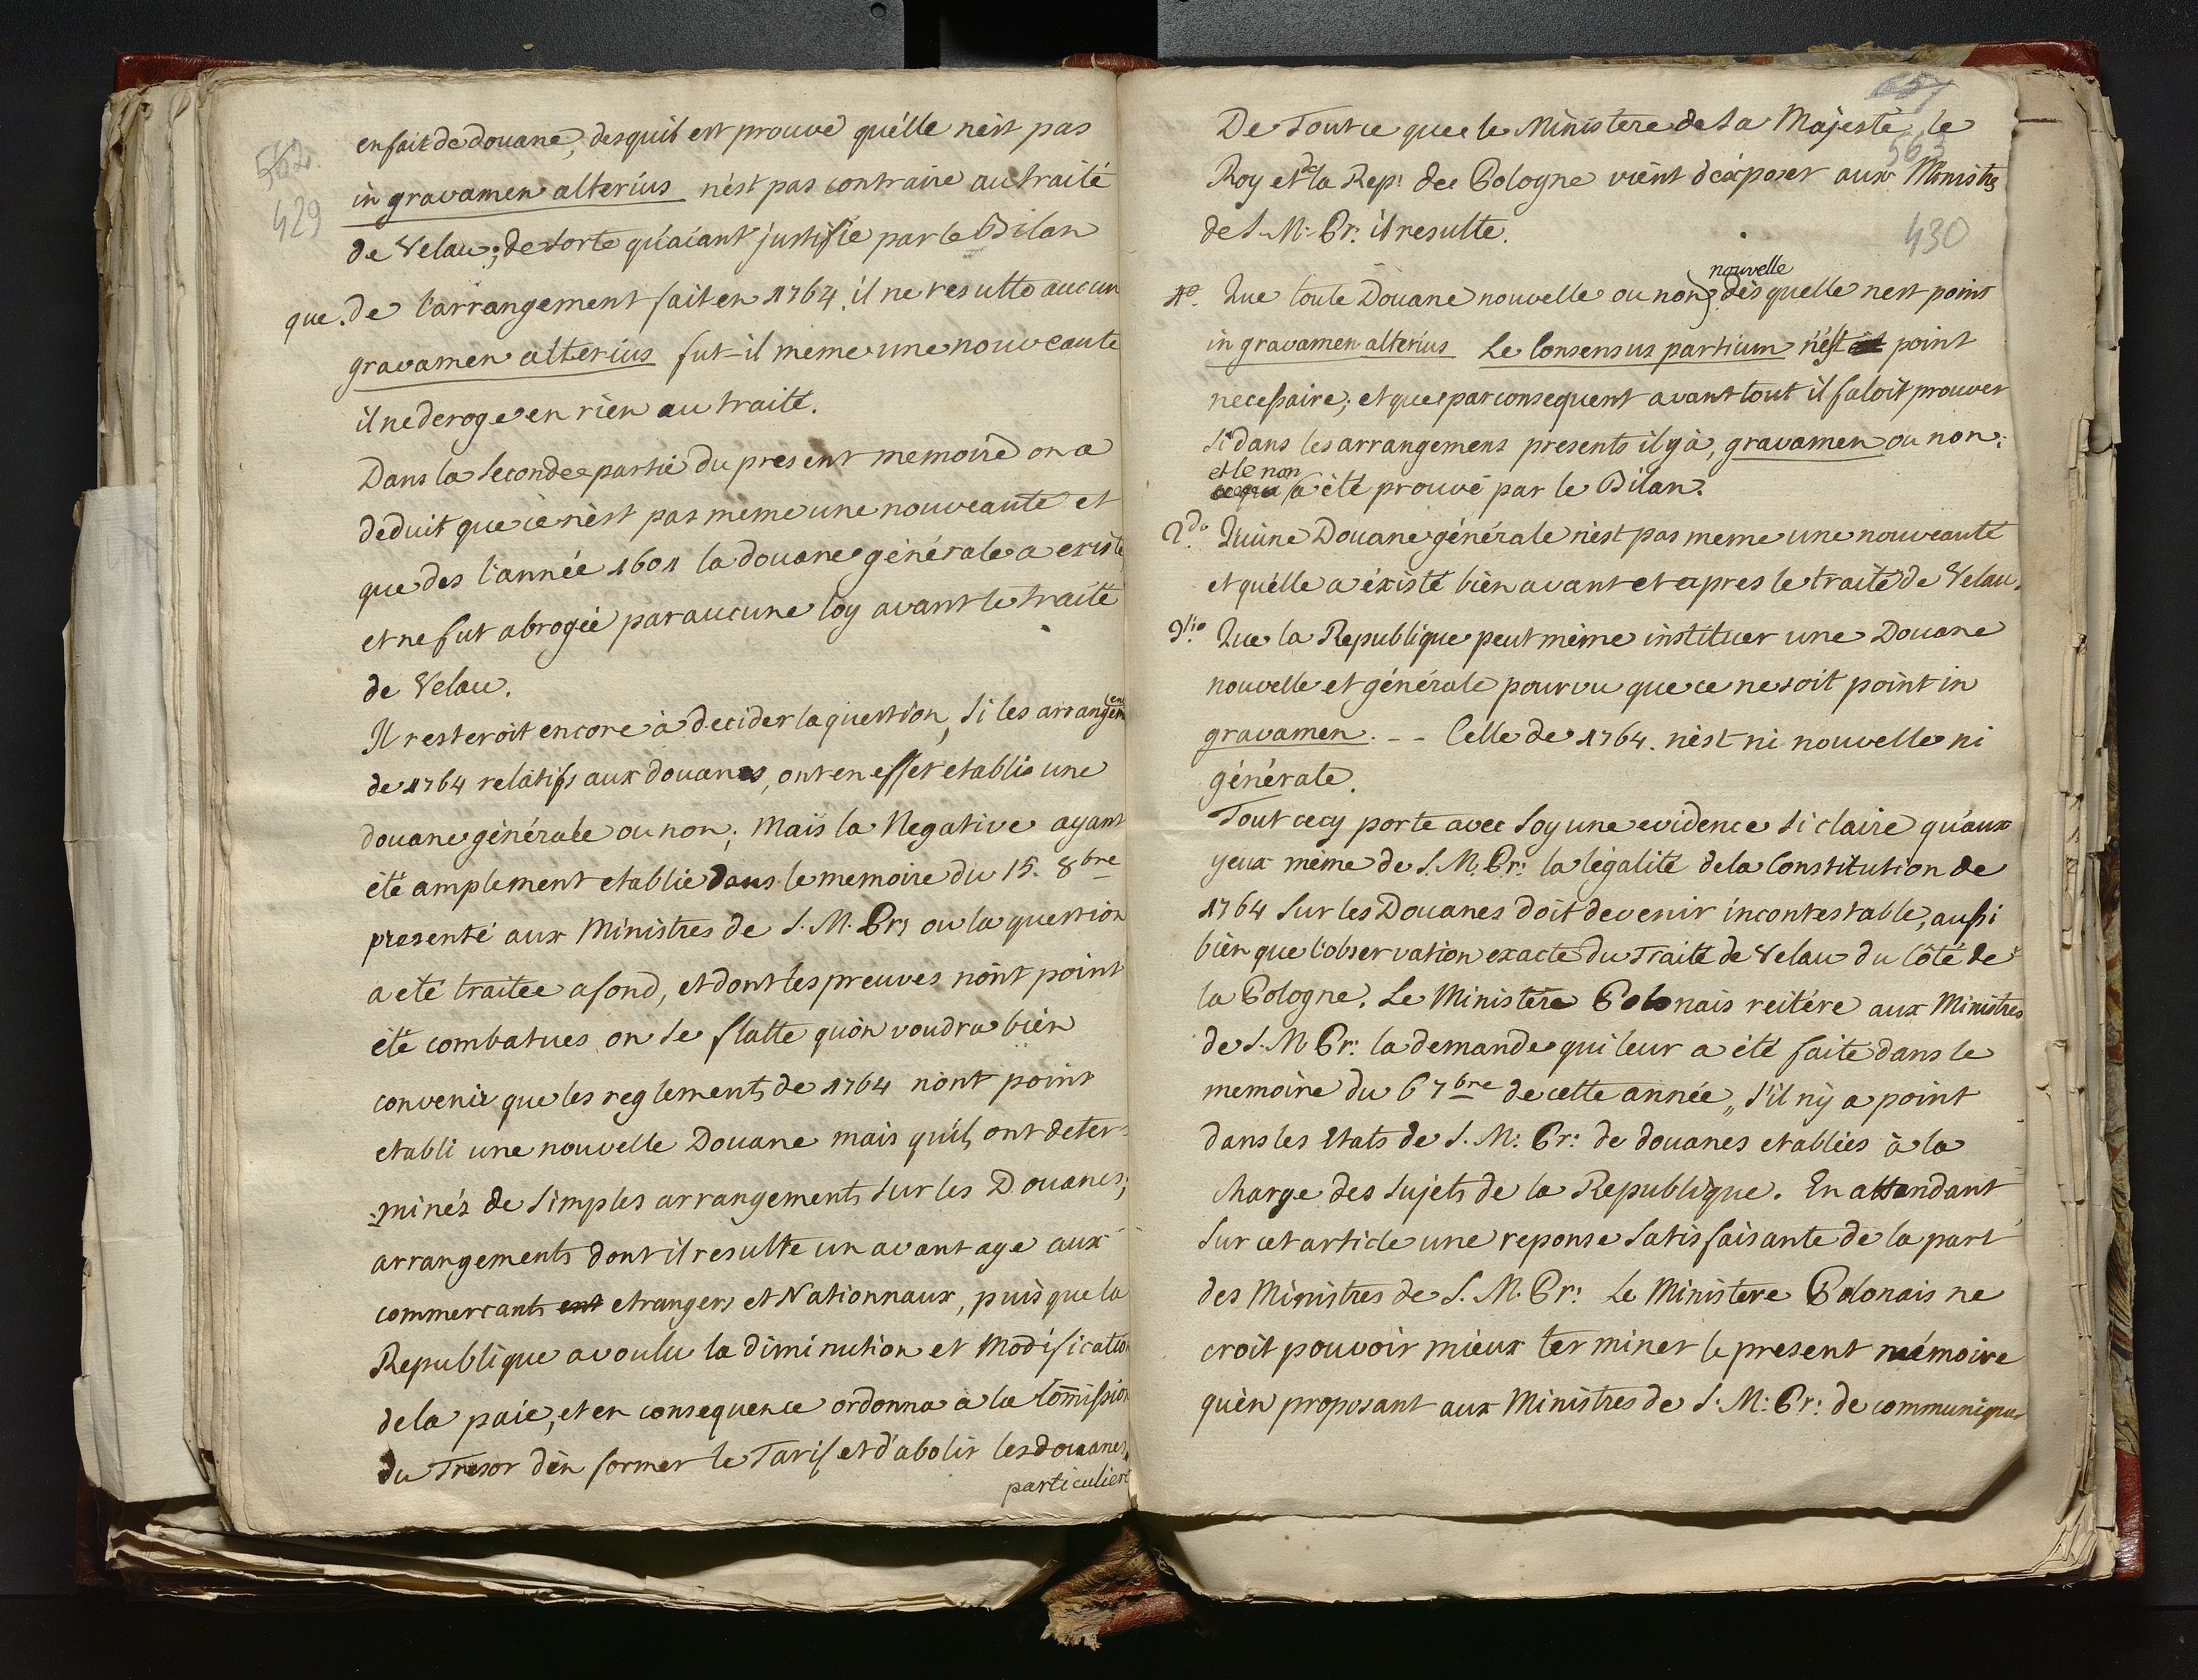 562.
429
en fait de douane, des qu'il est prouvé qu'élle nèst pas
in gravamen alterius n'èst pas contraire au traité
de Velau; de sorte qu'aïant justifié par le Bilan
que de l'arrangement fait en 1764. il ne resulte aucun
gravamen alterius fut-il meme une nouveauté
il ne deroge en rien au traité.
Dans la seconde partie du present memoire on a
deduit que ce nèst pas meme une nouveauté et
que des l'année 1601 la douane générale a existé
et ne fut abrogée par aucune loy avant le traité
de Velau.
Il resteroit encore à decider la question, si les arrangem en
de 1764 relatifs aux douanes, ont en effet etablis une
douane générale ou non; Mais la Negative ayant
été amplement etablie dans le memoire du 15. 8bre
presenté aux Ministres de S. M. Pr: ou la question
a eté traitée a fond, et dont les preuves nònt point
été combatues on se flatte quòn voudra bien
convenir que les reglements de 1764 nont point
etabli une nouvelle Douane mais qu'ils ont deter-
-minés de simples arrangements sur les Douanes;
arrangements dont il resulte un avantage aux
commercants ent etrangers et Nationnaux, puisque la
Republique a voulu la diminution et Modification
de la paie, et en consequence ordonna à la Com̃ission
du Tresor dèn former le Tarif et d'abolir les douanes
particulier
657
563
430
De Tout ce que le Ministere de Sa Majesté le
Roy et de la Rep: de Pologne vient d'exposer aux Ministrs
de S. M: Pr: il resulte.
1º. Que toute Douane nouvelle ou non nouvelle dès quelle nest point
in gravamen alterius Le Consensus partium nést est point
necessaire; et que par consequent avant tout il faloit prouver
si dans les arrangemens presents il y à, gravamen ou non:
et le non
ce qui a été prouvé par le Bilan.
2do. Qu'une Douane générale n'est pas meme une nouveauté
et qu'élle a éxisté bien avant et apres le traité de Velau.
3tio. Que la Republique peut même instituer une Douane
nouvelle et générale pourvu que ce ne soit point in
gravamen. - - Celle de 1764. nèst ni nouvelle ni
générale.
Tout cecy porte avec soy une evidence si claire qu'aux
yeux même de S. M. Pr: la légalité de la Constitution de
1764 sur les Douanes doit devenir incontestable, aussi
bien que l'observation exacte du Traité de Velau du Côté de
la Pologne. Le Ministère Polonais reitére aux Ministres
de S. M Pr: la demande qui leur a été faite dans le
memoire du 6 7bre de cette année „ s'il ny a point
dans les Etats de S. M: Pr: de douanes etablies à la
charge des sujets de la Republique. En attendant
sur cet article une reponse satisfaisante de la part
des Ministres de S. M. Pr: Le Ministere Polonais ne
croit pouvoir mieux terminer le present mémoire
quèn proposant aux Ministres de S. M: Pr: de communiquer